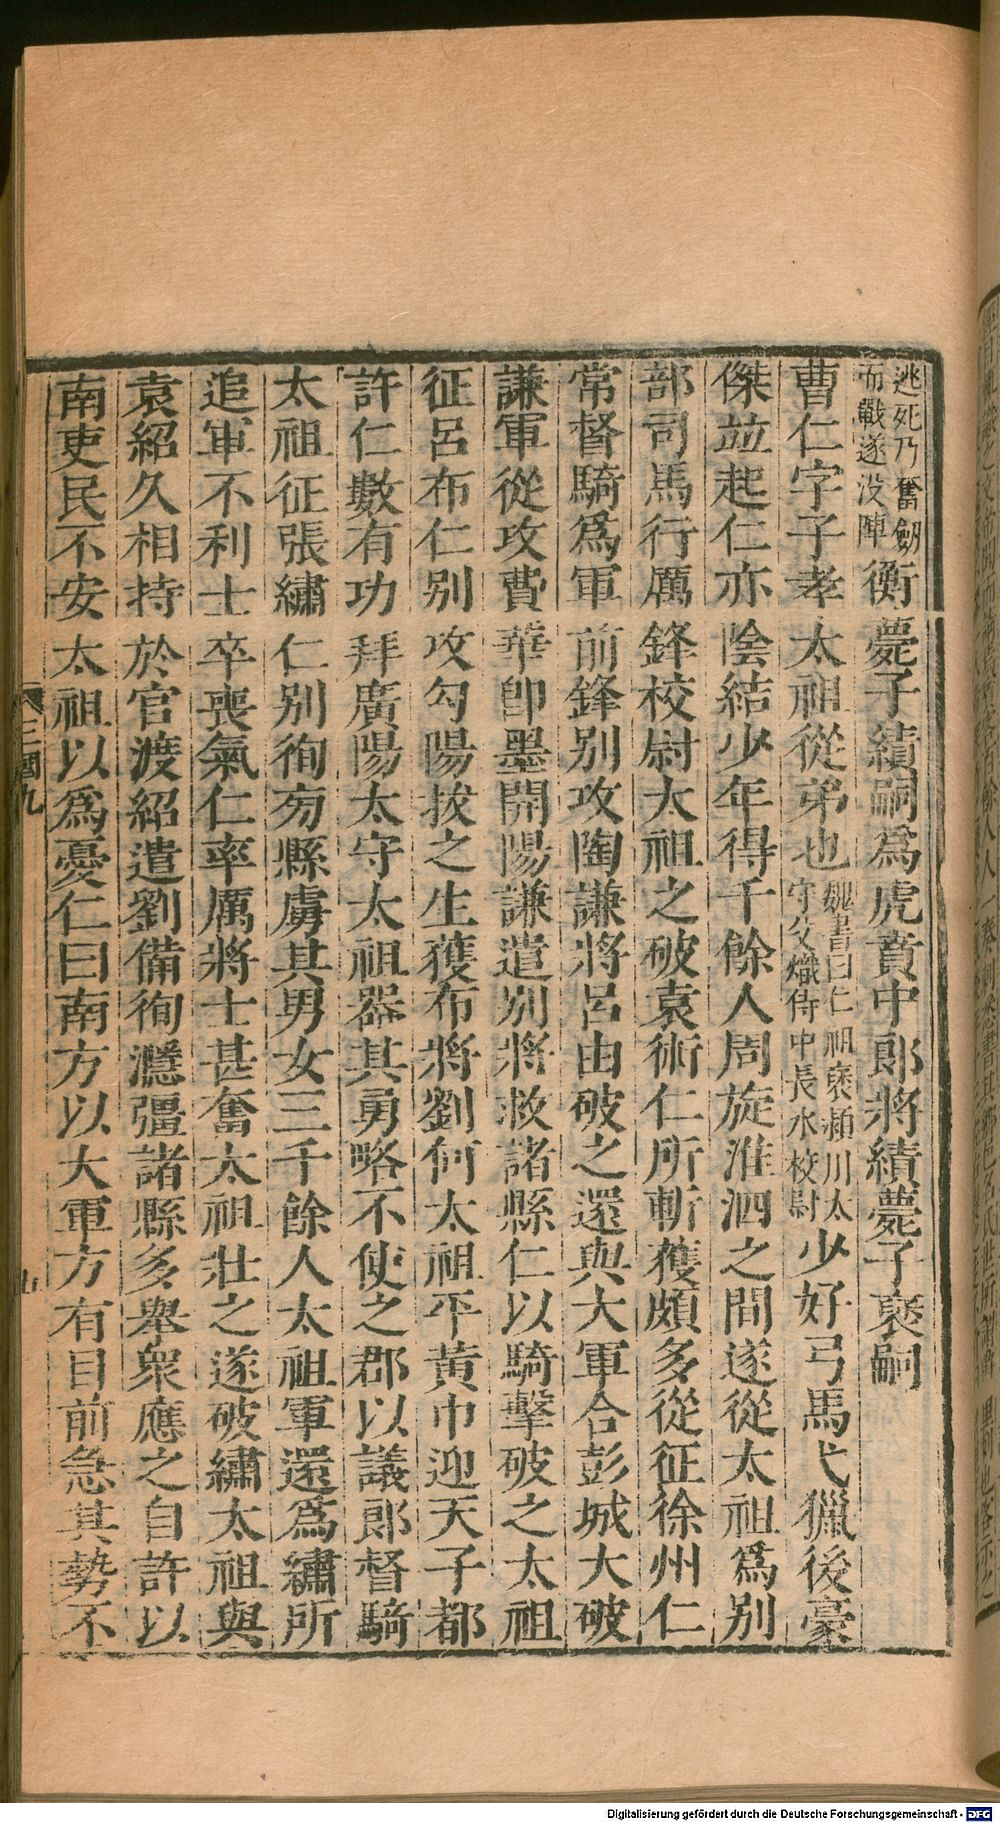 逃死乃奮劒
而戰遂没陣
衡薨子績嗣爲虎賁中郎將績薨子褒嗣
曹仁字子孝太祖從弟也
魏書曰仁祖褒潁川太
守父熾侍中長水校尉
少好弓馬弋獵後豪
傑並起仁亦陰結少年得千餘人周旋淮泗之間遂從太祖爲別
部司馬行厲鋒校尉太祖之破袁術仁所斬獲頗多從征徐州仁
常督騎爲軍前鋒別攻陶謙將呂由破之還與大軍合彭城大破
謙軍從攻費華卽墨開陽謙遣別將救諸縣仁以騎擊破之太祖
征呂布仁別攻勾陽拔之生獲布將劉何太祖平黃巾迎天子都
許仁數有功拜廣陽太守太祖器其勇略不使之郡以議郎督騎
太祖征張繡仁別徇旁縣虜其男女三千餘人太祖軍還爲繡所
追軍不利士卒喪氣仁率厲將士甚奮太祖壯之遂破繡太祖與
袁紹久相持於官渡紹遣劉備徇㶏彊諸縣多舉衆應之自許以
南吏民不安太祖以爲憂仁曰南方以大軍方有目前急其勢不
三國九
Digitalisierung gefördert durch die Deutsche Forschungsgemeinschaft - DFG